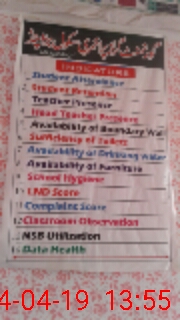 INDICATORS
Student Attendance
Student Retention
Teacher Presence
Head Teacher Presence
Availability of Boundary Wall
Sufficiency of Toilets
Availability of Drinking Water
Availability of Furniture
School Hygiene
LND Score
Complaint Score
Classroom Observation
NSB Utilization
Data Health
4-04-19 13:55